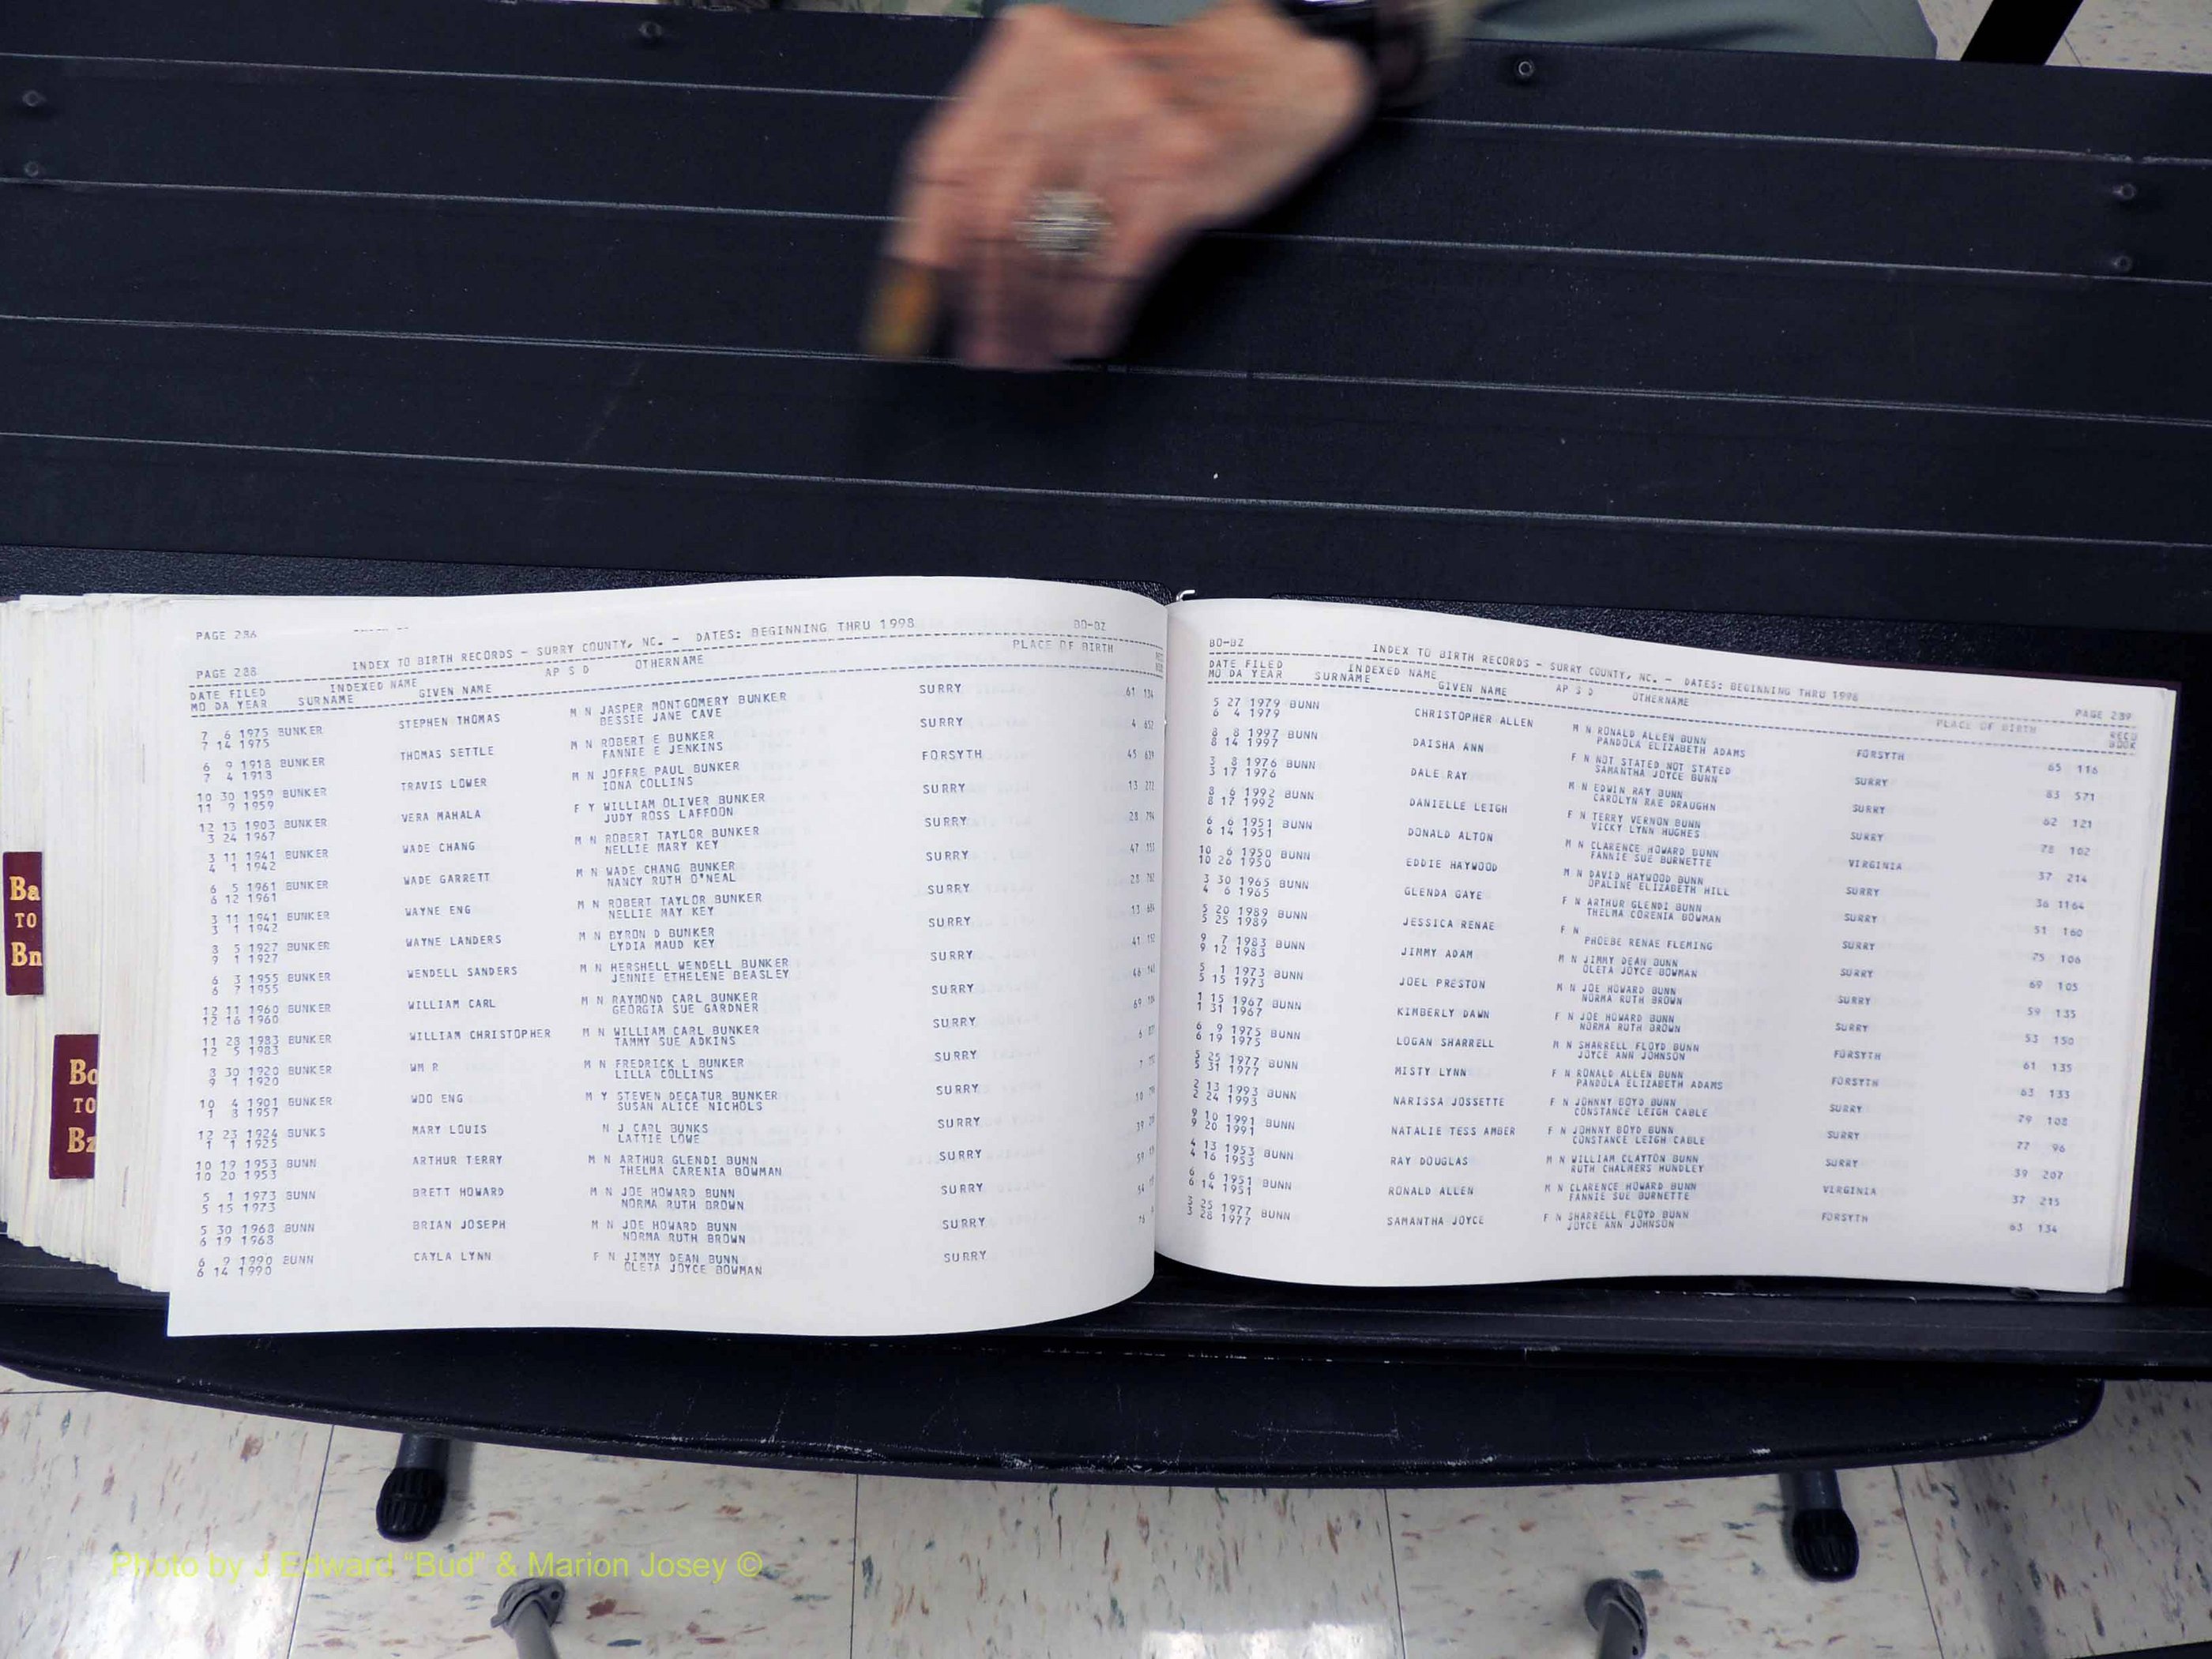 Ba
TO
Bn
Bo
TO
Bz
PAGE 286
PAGE 288 INDEX TO BIRTH RECORDS - SURRY COUNTY, NC. - DATES: BEGINNING THRU 1998 BO-BZ
DATE FILED INDEXED NAME AP S D OTHERNAME PLACE OF BIRTH
MO DA YEAR SURNAME GIVEN NAME
7 6 1975 BUNKER STEPHEN THOMAS M N JASPER MONTGOMERY BUNKER SURRY 61 134
7 14 1975 BESSIE JANE CAVE
6 9 1918 BUNKER THOMAS SETTLE M N ROBERT E BUNKER SURRY 4
7 4 1918 FANNIE E JENKINS
10 30 1959 BUNKER TRAVIS LOWER M N JOFFRE PAUL BUNKER FORSYTH 45
11 9 1959 IONA COLLINS
12 13 1903 BUNKER VERA MAHALA F Y WILLIAM OLIVER BUNKER SURRY 13
3 24 1967 JUDY ROSS LAFFOON
3 11 1941 BUNKER WADE CHANG M N ROBERT TAYLOR BUNKER SURRY 28
4 1 1942 NELLIE MARY KEY
6 5 1961 BUNKER WADE GARRETT M N WADE CHANG BUNKER SURRY 47
6 12 1961 NANCY RUTH O'NEAL
3 11 1941 BUNKER WAYNE ENG M N ROBERT TAYLOR BUNKER SURRY 28
3 1 1942 NELLIE MAY KEY
8 5 1927 BUNKER WAYNE LANDERS M N BYRON D BUNKER SURRY 13
9 1 1927 LYDIA MAUD KEY
6 3 1955 BUNKER WENDELL SANDERS M N HERSHELL WENDELL BUNKER SURRY 41
6 7 1955 JENNIE ETHELENE BEASLEY
12 11 1960 BUNKER WILLIAM CARL M N RAYMOND CARL BUNKER SURRY 46
12 16 1960 GEORGIA SUE GARDNER
11 28 1983 BUNKER WILLIAM CHRISTOPHER M N WILLIAM CARL BUNKER SURRY 69
12 5 1983 TAMMY SUE ADKINS
8 30 1920 BUNKER WM R M N FREDRICK L BUNKER SURRY 6
9 1 1920 LILLA COLLINS
10 4 1901 BUNKER WOO ENG M Y STEVEN DECATUR BUNKER SURRY 7
1 8 1957 SUSAN ALICE NICHOLS
12 23 1924 BUNKS MARY LOUIS N J CARL BUNKS SURRY 10
1 1 1925 LATTIE LOWE
10 19 1953 BUNN ARTHUR TERRY M N ARTHUR GLENDI BUNN SURRY 39
10 20 1953 THELMA CARENIA BOWMAN
5 1 1973 BUNN BRETT HOWARD M N JOE HOWARD BUNN SURRY
5 15 1973 NORMA RUTH BROWN
5 30 1968 BUNN BRIAN JOSEPH M N JOE HOWARD BUNN SURRY
6 19 1968 NORMA RUTH BROWN
6 9 1990 BUNN CAYLA LYNN F N JIMMY DEAN BUNN SURRY
6 14 1990 OLETA JOYCE BOWMAN
BO-BZ INDEX TO BIRTH RECORDS - SURRY COUNTY, NC. - DATES: BEGINNING THRU 1998 PAGE 289
DATE FILED INDEXED NAME AP S D OTHERNAME PLACE OF BIRTH
MO DA YEAR SURNAME GIVEN NAME BOOK
5 27 1979 BUNN CHRISTOPHER ALLEN M N RONALD ALLEN BUNN FORSYTH 65 116
6 4 1979 PANDOLA ELIZABETH ADAMS
8 8 1997 BUNN DAISHA ANN F N NOT STATED NOT STATED SURRY 83 571
8 14 1997 SAMANTHA JOYCE BUNN
3 8 1976 BUNN DALE RAY M N EDWIN RAY BUNN SURRY 62 121
3 17 1976 CAROLYN RAE DRAUGHN
8 6 1992 BUNN DANIELLE LEIGH F N TERRY VERNON BUNN SURRY 78 102
8 17 1992 VICKY LYNN HUGHES
6 6 1951 BUNN DONALD ALTON M N CLARENCE HOWARD BUNN VIRGINIA 37 214
6 14 1951 FANNIE SUE BURNETTE
10 6 1950 BUNN EDDIE HAYWOOD M N DAVID HAYWOOD BUNN SURRY 36 1164
10 26 1950 OPALINE ELIZABETH HILL
3 30 1965 BUNN GLENDA GAYE F N ARTHUR GLENDI BUNN SURRY 51 160
4 6 1965 THELMA CORENIA BOWMAN
5 20 1989 BUNN JESSICA RENAE F N SURRY 75 106
5 25 1989 PHOEBE RENAE FLEMING
9 7 1983 BUNN JIMMY ADAM M N JIMMY DEAN BUNN SURRY 69 105
9 12 1983 OLETA JOYCE BOWMAN
5 1 1973 BUNN JOEL PRESTON M N JOE HOWARD BUNN SURRY 59 135
5 15 1973 NORMA RUTH BROWN
1 15 1967 BUNN KIMBERLY DAWN F N JOE HOWARD BUNN SURRY 53 150
1 31 1967 NORMA RUTH BROWN
6 9 1975 BUNN LOGAN SHARRELL M N SHARRELL FLOYD BUNN FORSYTH 61 135
6 19 1975 JOYCE ANN JOHNSON
5 25 1977 BUNN MISTY LYNN F N RONALD ALLEN BUNN FORSYTH 63 133
5 31 1977 PANDOLA ELIZABETH ADAMS
2 13 1993 BUNN NARISSA JOSSETTE F N JOHNNY BOYD BUNN SURRY 79 108
2 24 1993 CONSTANCE LEIGH CABLE
9 10 1991 BUNN NATALIE TESS AMBER F N JOHNNY BOYD BUNN SURRY 77 96
9 20 1991 CONSTANCE LEIGH CABLE
4 13 1953 BUNN RAY DOUGLAS M N WILLIAM CLAYTON BUNN SURRY 39 207
4 16 1953 RUTH CHALMERS HUNDLEY
6 6 1951 BUNN RONALD ALLEN M N CLARENCE HOWARD BUNN VIRGINIA 37 215
6 14 1951 FANNIE SUE BURNETTE
3 25 1977 BUNN SAMANTHA JOYCE F N SHARRELL FLOYD BUNN FORSYTH 63 134
3 28 1977 JOYCE ANN JOHNSON
Photo by J Edward "Bud" & Marion Josey ©